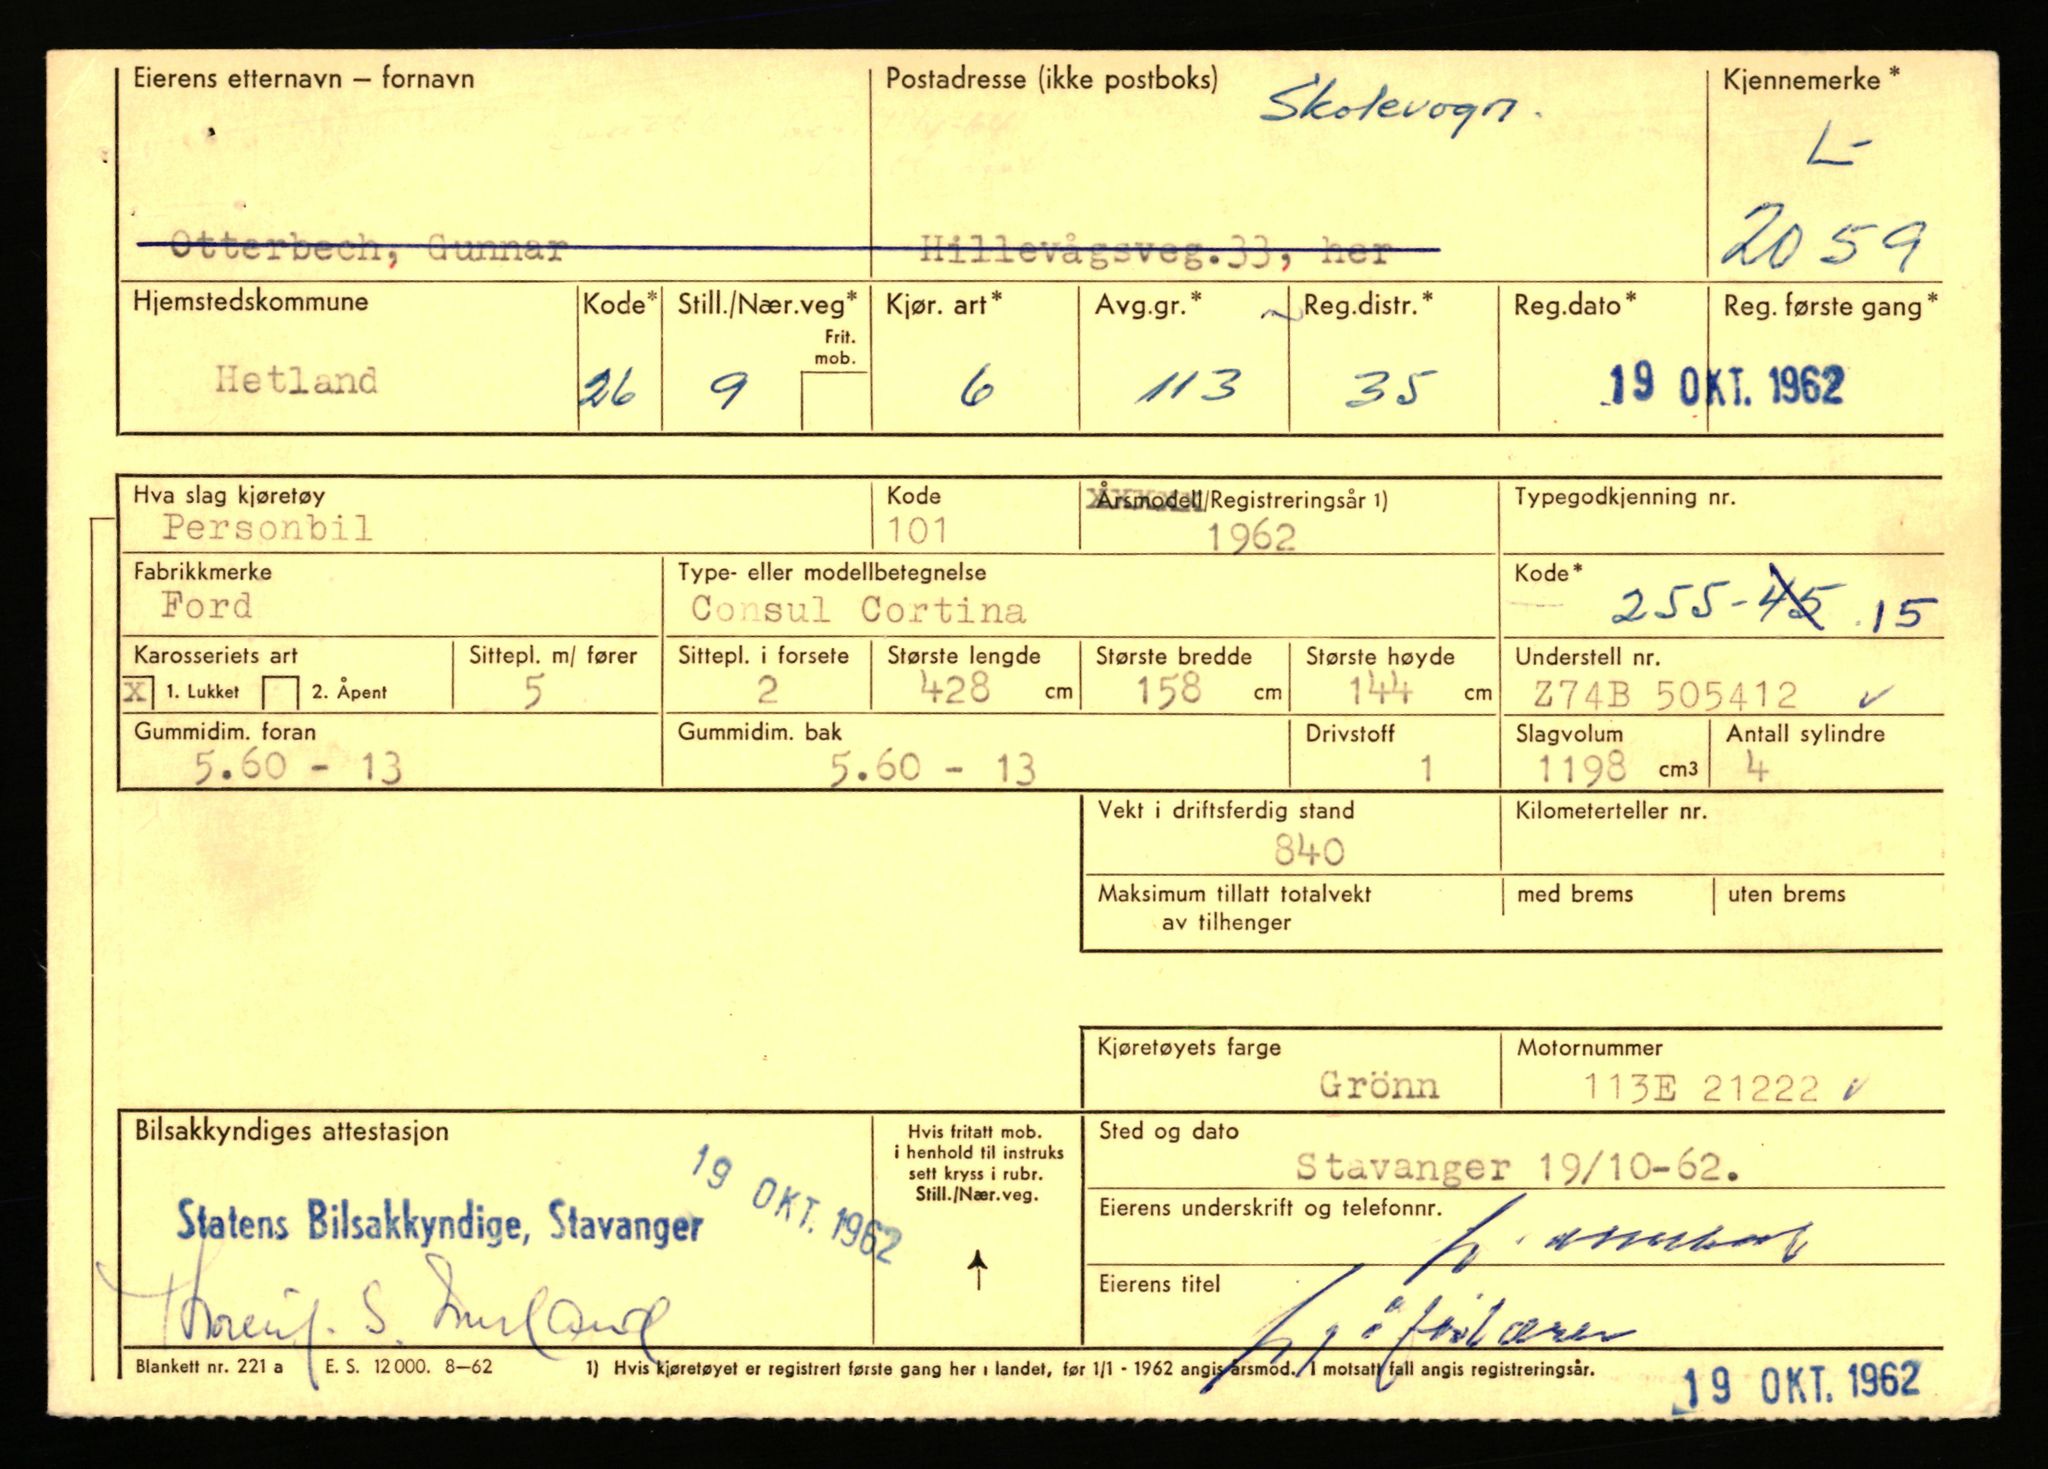 Eierens etternavn — fornavn Postadresse (ikke postboks) Kjennemerke*
Skolevogn.
L-
2059
Otterbech, Gunnar Hillevågsveg.33, her
Hjemstedskommune Kode* Still./Nær.veg* Kjør. art* Avg.gr.* Reg.distr.* Reg.dato* Reg. første gang*
Frit.
mob.
Hetland 26 9 6 113 35 19 OKT. 1962
Hva slag kjøretøy Kode Årsmodell/Registreringsår 1) Typegodkjenning nr.
Personbil 101 1962
Fabrikkmerke Type- eller modellbetegnelse Kode*
Ford Consul Cortina 255-45 .15
Karosseriets art Sittepl. m/ fører Sittepl. i forsete Største lengde Største bredde Største høyde Understell nr.
X 1. Lukket 2. Åpent 5 2 428 cm 158 cm 144 cm Z74B 505412 ✓
Gummidim. foran Gummidim. bak Drivstoff Slagvolum Antall sylindre
5.60 - 13 5.60 - 13 1 1198 cm3 4
Vekt i driftsferdig stand Kilometerteller nr.
840
Maksimum tillatt totalvekt med brems uten brems
av tilhenger
Kjøretøyets farge Motornummer
Grönn 113E 21222 ✓
Bilsakkyndiges attestasjon Hvis fritatt mob. Sted og dato
i henhold til instruks
sett kryss i rubr.
Still./Nær.veg.
Stavanger 19/10-62.
19 OKT. 1962
Statens Bilsakkyndige, Stavanger
Eierens underskrift og telefonnr.
Eierens titel
S.
Blankett nr. 221 a E. S. 12 000. 8—62 1) Hvis kjøretøyet er registrert første gang her i landet, før 1/1 - 1962 angis årsmod. I motsatt fall angis registreringsår.
19 OKT. 1962